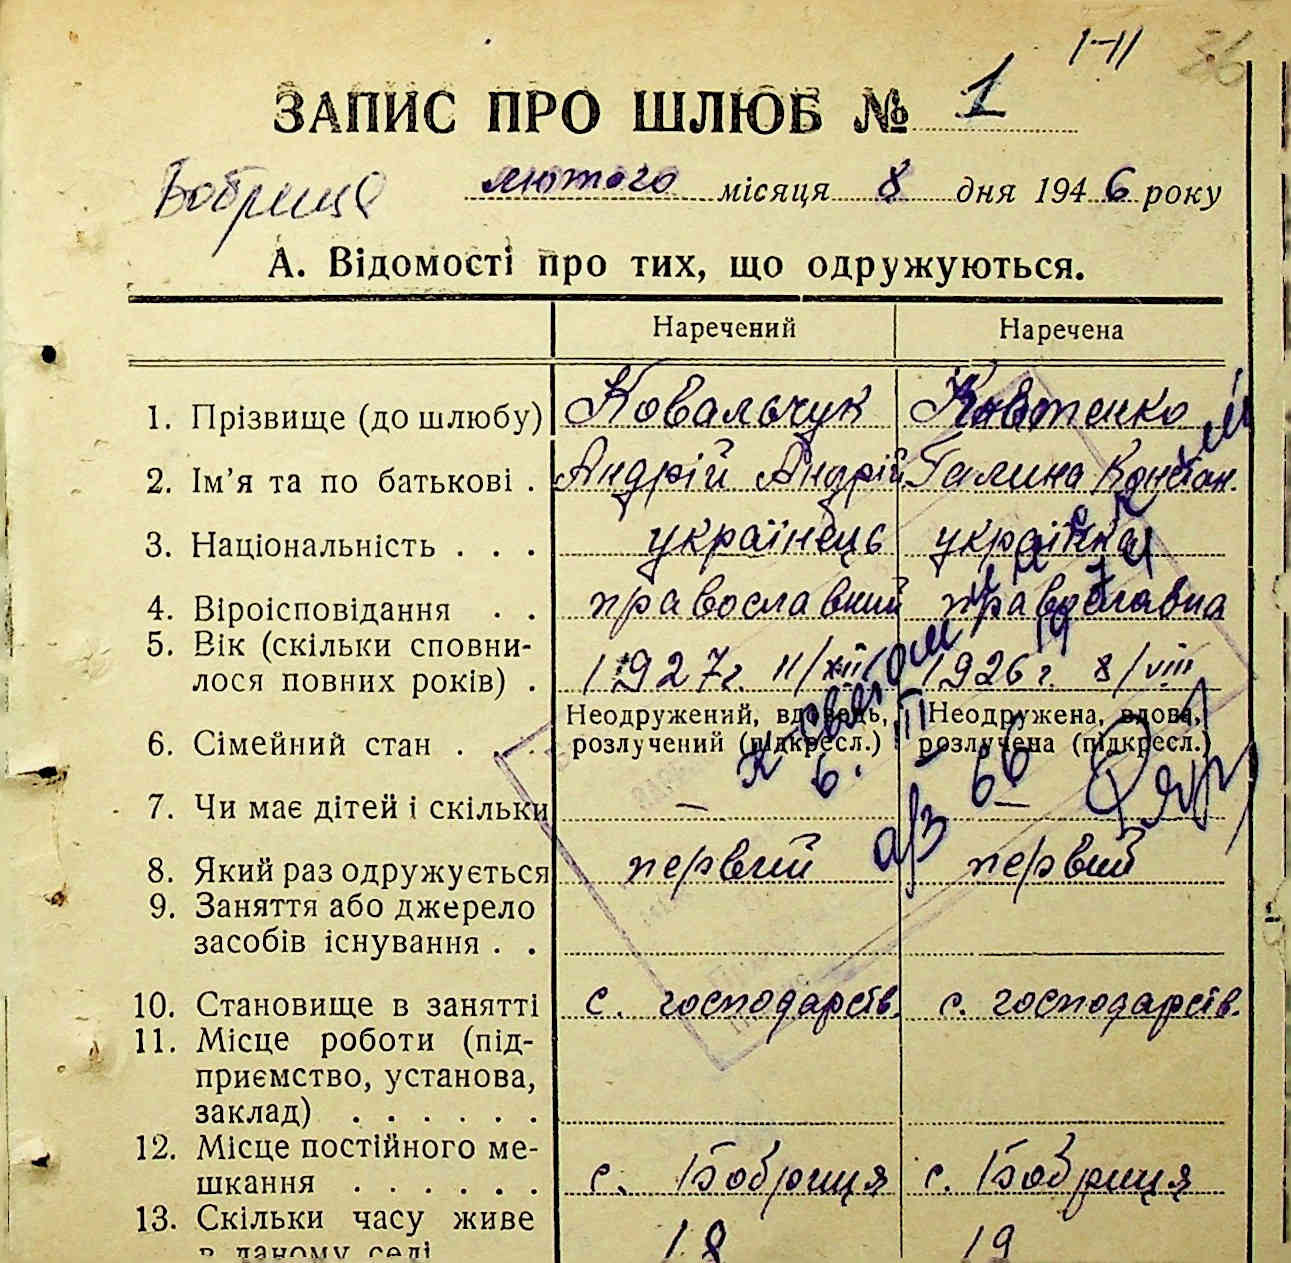 1-11 36
ЗАПИС ПРО ШЛЮБ № 1
Бобриця лютого місяця 8 дня 1946 року
А. Відомості про тих, що одружуються.
Наречений Наречена
1. Прізвище (до шлюбу) Ковальчук Ковтенко
2. Ім'я та по батькові . Андрій Андрій Галина Констан.
3. Національність . . . українець українка
4. Віроісповідання . . православний православна
5. Вік (скільки сповни-
лося повних років) . 1927 г. 11/XII 1926 г. 8/VIII
6. Сімейний стан . . . Неодружений, вдовець, Неодружена, вдова,
розлучений (підкресл.) розлучена (підкресл.)
7. Чи має дітей і скільки — —
8. Який раз одружується первий первий
9. Заняття або джерело
засобів існування . .
10. Становище в занятті с. господарств. с. господарств.
11. Місце роботи (під-
приємство, установа,
заклад) . . . . . .
12. Місце постійного ме-
шкання . . . . . . с. Бобриця с. Бобриця
13. Скільки часу живе
в даному селі 18 19